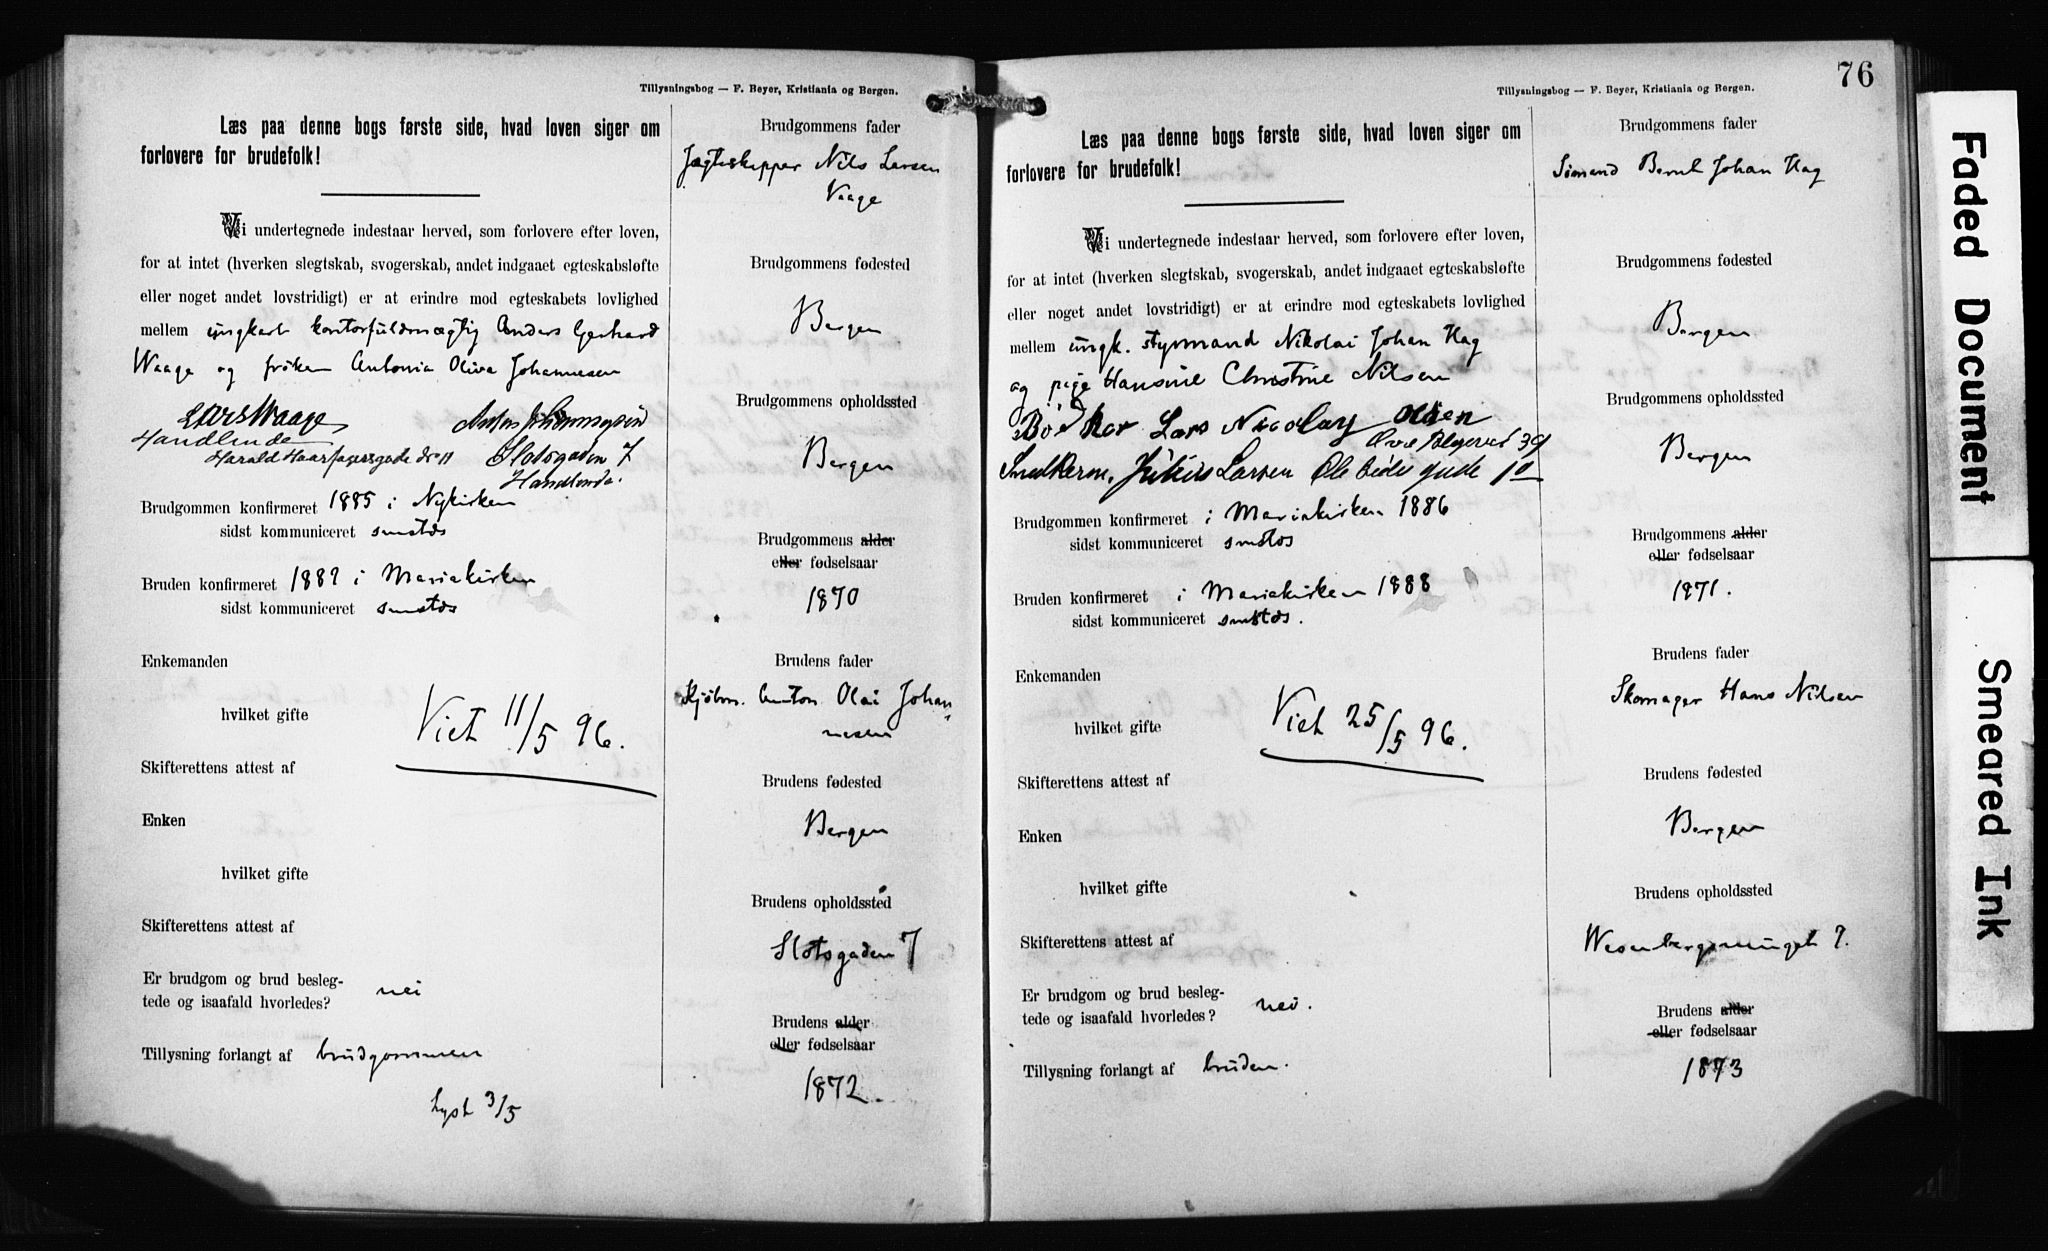 Tillysningsbog — F. Beyer, Kristiania og Bergen.
Læs paa denne bogs første side, hvad loven siger om
forlovere for brudefolk!
Vi undertegnede indestaar herved, som forlovere efter loven,
for at intet (hverken slegtskab, svogerskab, andet indgaaet egteskabsløfte
eller noget andet lovstridigt) er at erindre mod egteskabets lovlighed
mellem ungkarl kontorfuldmægtig Anders Gerhard
Waage og frøken Antonia Oliva Johannesen
Lars Waage
Handlende
Harald Haarfagersgade No 11
Slotsgaden 7
Handlende.
Brudgommen konfirmeret 1885 i Nykirken
sidst kommuniceret smstds
Bruden konfirmeret 1887 i Mariakirken
sidst kommuniceret smstds
Enkemanden
hvilket gifte
Viet 11/5 96.
Skifterettens attest af
Enken
hvilket gifte
Skifterettens attest af
Er brudgom og brud besleg-
tede og isaafald hvorledes? nei
Tillysning forlangt af brudgommen
Lyst 3/5
Brudgommens fader
Jægteskipper Nils Larsen
Vaage
Brudgommens fødested
Bergen
Brudgommens opholdssted
Bergen
Brudgommens alder
eller fødselsaar
1870
Brudens fader
Kjøbm. Anton Olai Johan-
nesen
Brudens fødested
Bergen
Brudens opholdssted
Slotsgaden 7
Brudens alder
eller fødselsaar
1872.
76
Tillysningsbog — F. Beyer, Kristiania og Bergen.
Læs paa denne bogs første side, hvad loven siger om
forlovere for brudefolk!
Vi undertegnede indestaar herved, som forlovere efter loven,
for at intet (hverken slegtskab, svogerskab, andet indgaaet egteskabsløfte
eller noget andet lovstridigt) er at erindre mod egteskabets lovlighed
mellem ungk. styrmand Nikolai Johan Hag
og pige Hansine Christine Nilsen
Bødker Lars Nicolay Olsen
39
Snedkerm. Julius Larsen Ole gade 10
Brudgommen konfirmeret i Mariakirken 1886
sidst kommuniceret smstds
Bruden konfirmeret i Mariakirken 1888
sidst kommuniceret smstds.
Enkemanden
hvilket gifte
Viet 25/5 96.
Skifterettens attest af
Enken
hvilket gifte
Skifterettens attest af
Er brudgom og brud besleg-
tede og isaafald hvorledes? nei.
Tillysning forlangt af bruden.
Brudgommens fader
Sømand Bernt Johan Hag
Brudgommens fødested
Bergen
Brudgommens opholdssted
Bergen
Brudgommens alder
eller fødselsaar
1871.
Brudens fader
Skomager Hans Nilsen
Brudens fødested
Bergen
Brudens opholdssted
Wesenbergsmuget 7.
Brudens alder
eller fødselsaar
1873
Faded Document
Smeared Ink